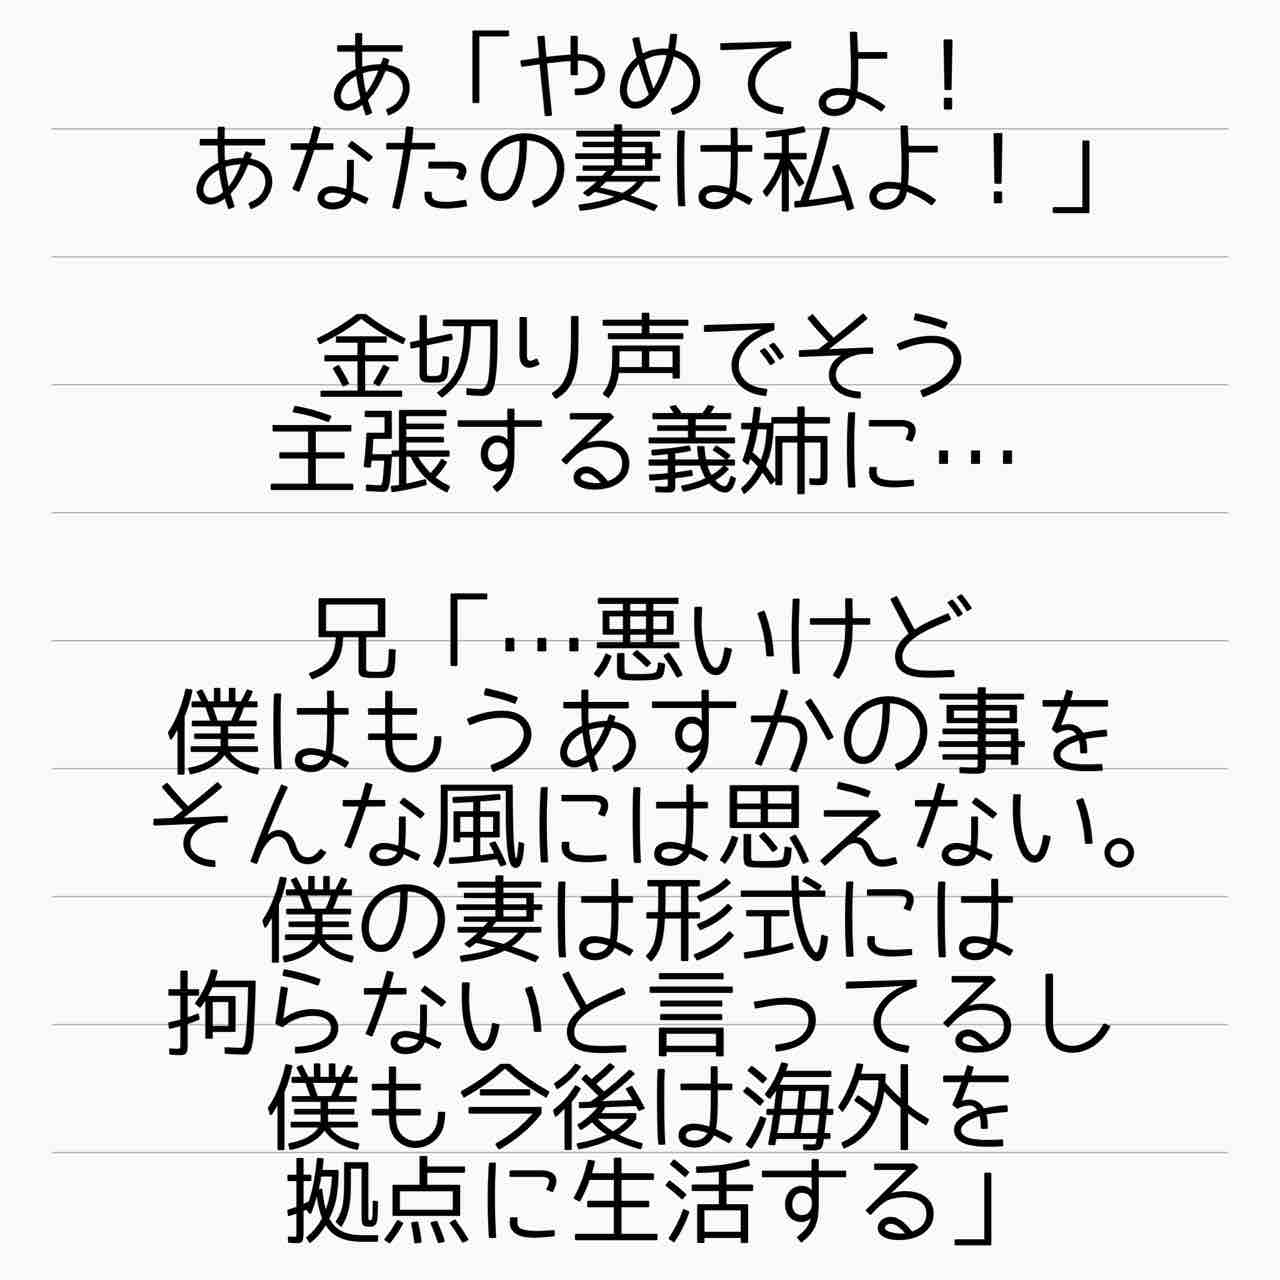 あ「やめてよ!
あなたの妻は私よ!」
金切り声でそう
主張する義姉に…
兄「…悪いけど
僕はもうあすかの事を
そんな風には思えない。
僕の妻は形式には
拘らないと言ってるし
僕も今後は海外を
拠点に生活する」